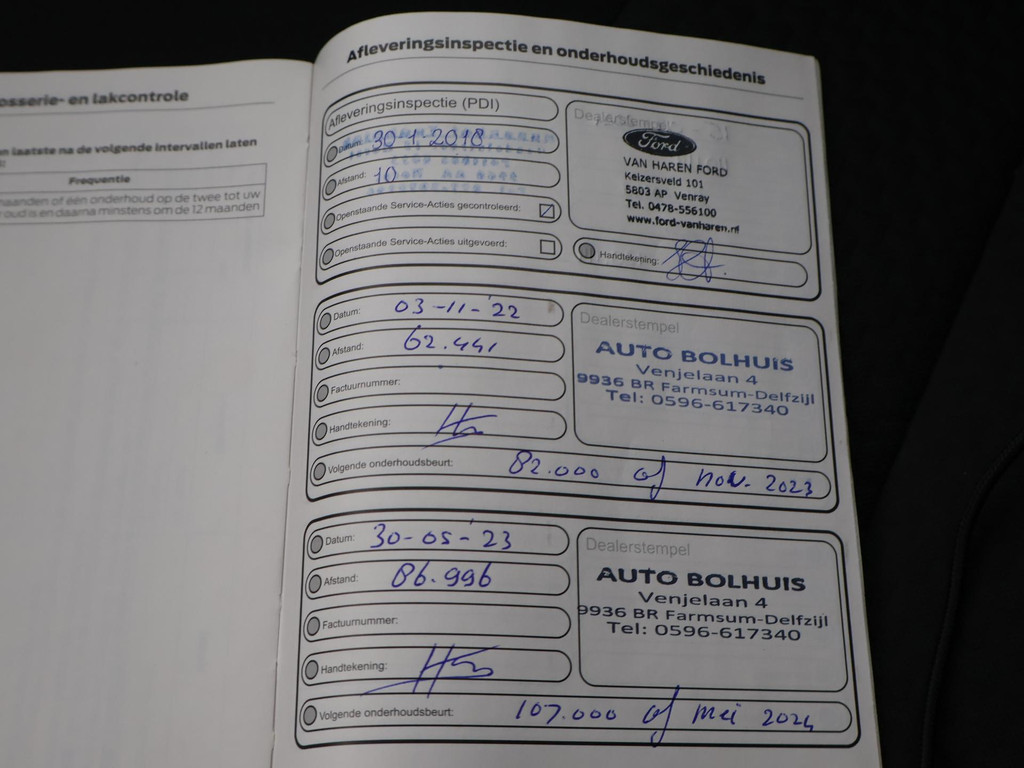 osserie- en lakcontrole
en laatste na de volgende intervallen laten
Frequentie
maanden of één onderhoud op de twee tot uw
oud is en daarna minstens om de 12 maanden
Afleveringsinspectie en onderhoudsgeschiedenis
Afleveringsinspectie (PDI)
Datum: 30 1. 2018
Afstand: 10
Openstaande Service-Acties gecontroleerd:
Openstaande Service-Acties uitgevoerd:
Dealerstempel
Ford
VAN HAREN FORD
Keizersveld 101
5803 AP Venray
Tel. 0478-556100
www.ford-vanharen.nl
Handtekening:
Datum: 03-11-'22
Afstand: 62.441
Factuurnummer:
Handtekening:
Dealerstempel
AUTO BOLHUIS
Venjelaan 4
9936 BR Farmsum-Delfzijl
Tel: 0596-617340
Volgende onderhoudsbeurt: 82.000 of nov. 2023
Datum: 30-05-'23
Afstand: 86.996
Factuurnummer:
Handtekening:
Dealerstempel
AUTO BOLHUIS
Venjelaan 4
9936 BR Farmsum-Delfzijl
Tel: 0596-617340
Volgende onderhoudsbeurt: 107.000 of mei 2024